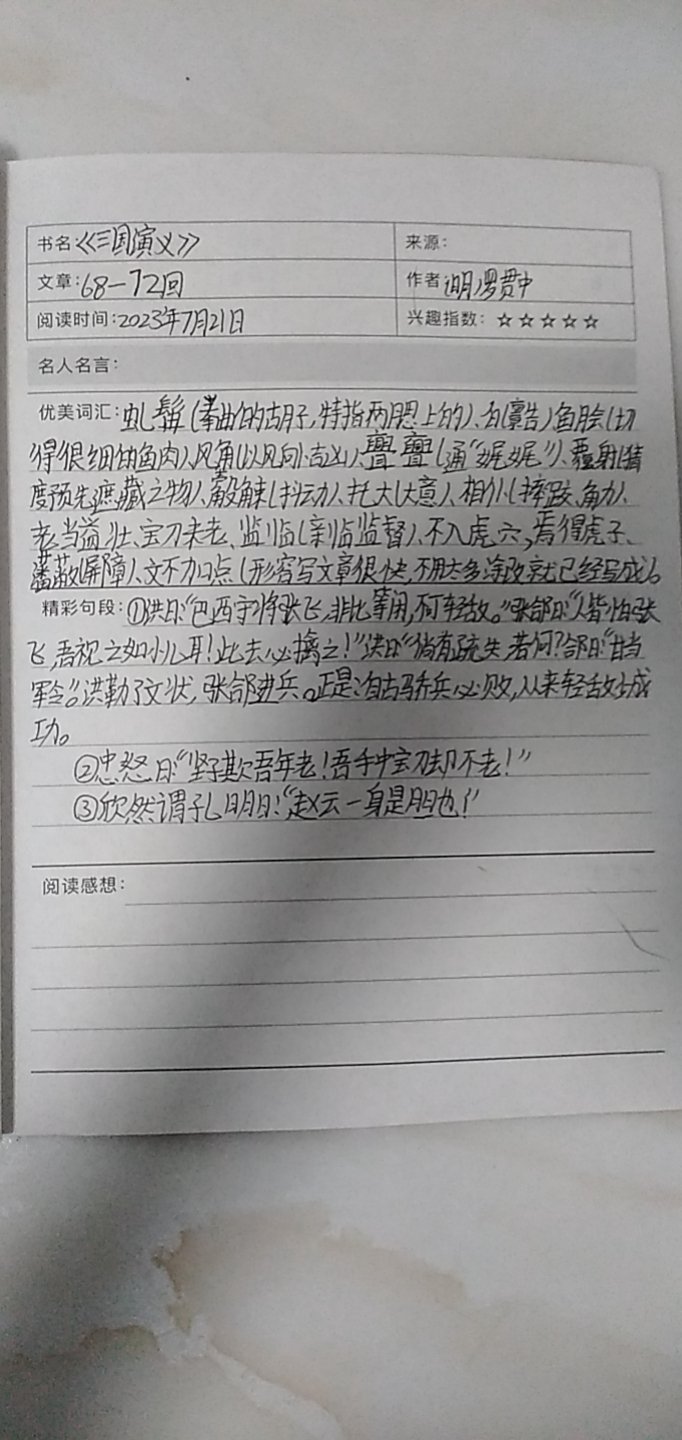 书名:《三国演义》 来源:
文章:68—72回 作者:明罗贯中
阅读时间:2023年7月21日 兴趣指数: ☆☆☆☆☆
名人名言:
优美词汇:虬髯(拳曲的胡子,特指两腮上的)、鱼脍(切
得很细的鱼肉)、风角(以风向卜吉凶)、亹亹(通“娓娓”)、覆射(猜
度预先遮藏之物)、觳觫(抖动)、托大(大意)、相扑(摔跤、角力)、
老当益壮、宝刀未老、监临(亲临监督)、不入虎穴,焉得虎子、
藩蔽(屏障)、文不加点(形容写文章很快,不用太多涂改就已经写成)。
精彩句段:①洪曰:“巴西守将张飞,非比等闲,不可轻敌。”张郃曰:“人皆怕张
飞,吾视之如小儿耳!此去必擒之!”洪曰:“倘有疏失,若何?”郃曰:“甘当
军令。”洪勒了文状,张郃进兵。正是:自古骄兵必败,从来轻敌少成
功。
②忠怒曰:“竖子欺吾年老!吾手中宝刀却不老!”
③欣然谓孔明曰:“赵云一身是胆也!”
阅读感想: